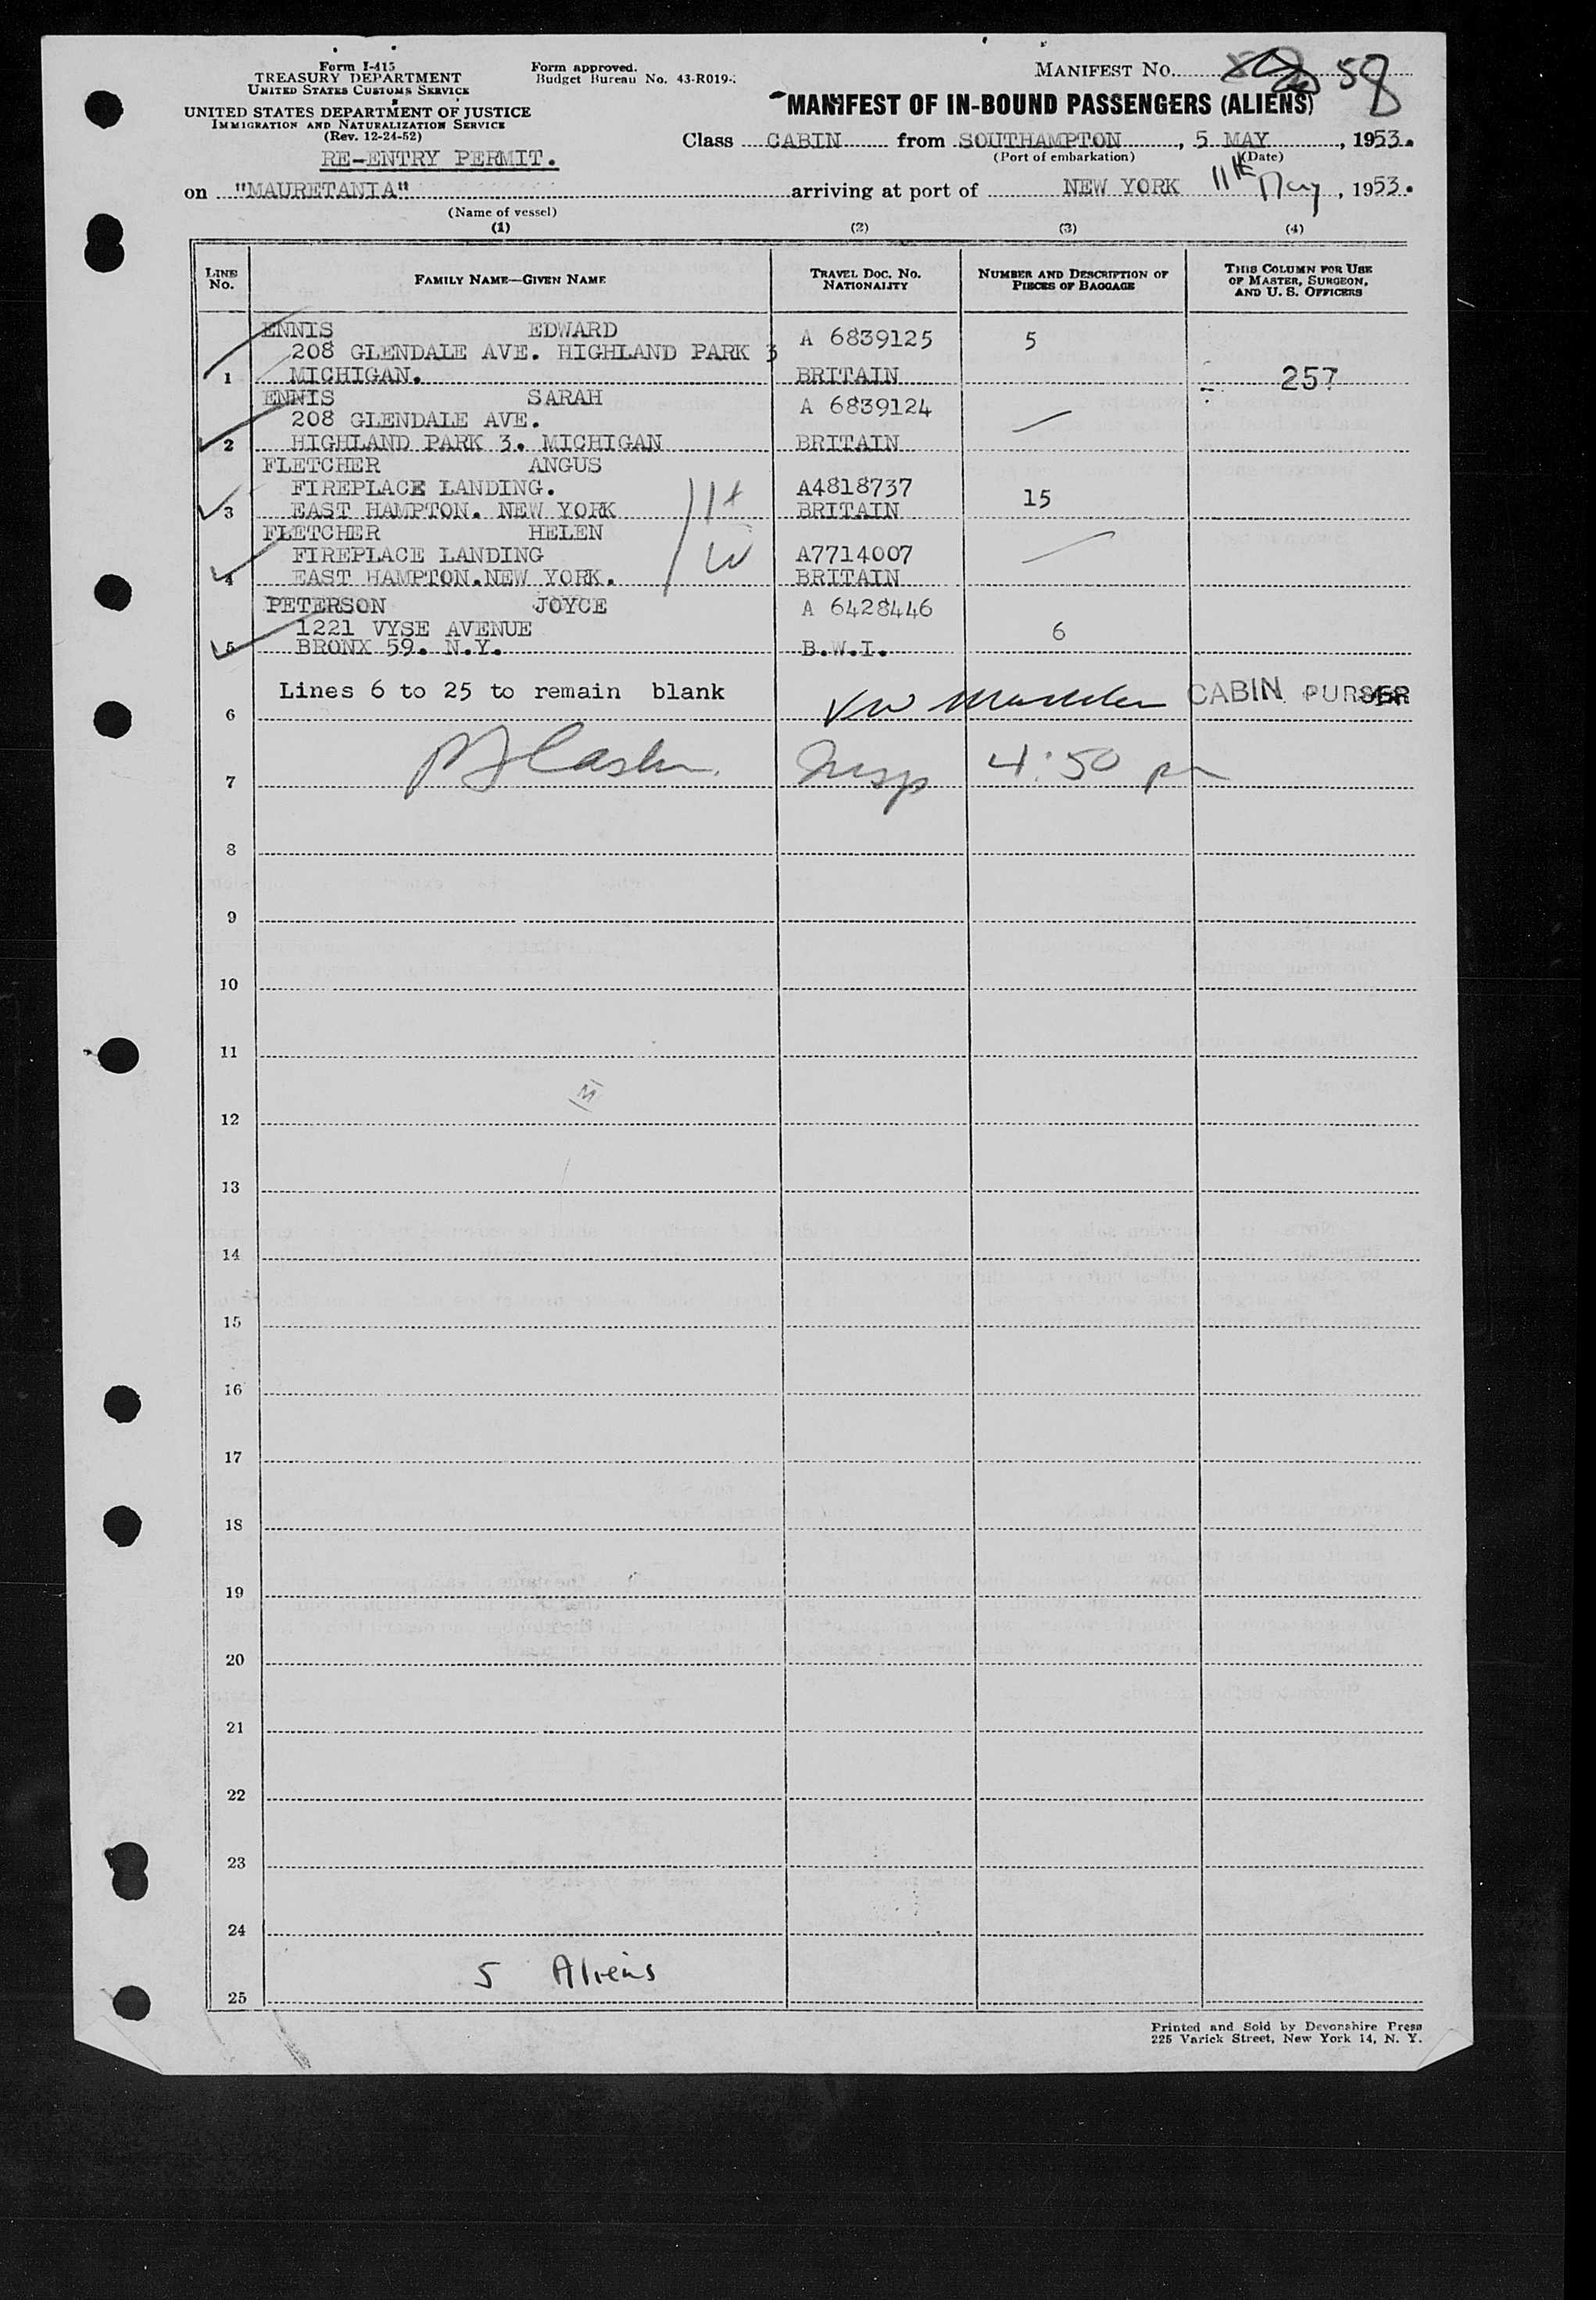 Form I-415
TREASURY DEPARTMENT
UNITED STATES CUSTOMS SERVICE
UNITED STATES DEPARTMENT OF JUSTICE
IMMIGRATION AND NATURALIZATION SERVICE
(Rev. 12-24-52)
RE-ENTRY PERMIT.
Form approved.
Budget Bureau No. 43-R019-
MANIFEST NO. 58
MANIFEST OF IN-BOUND PASSENGERS (ALIENS)
Class CABIN from SOUTHAMPTON, 5 MAY, 1953.
(Port of embarkation) (Date)
on "MAURETANIA" arriving at port of NEW YORK 11th May, 1953.
(Name of vessel)
(1) (2) (3) (4)
LINE NO. FAMILY NAME—GIVEN NAME TRAVEL DOC. NO. NATIONALITY NUMBER AND DESCRIPTION OF PIECES OF BAGGAGE THIS COLUMN FOR USE OF MASTER, SURGEON, AND U. S. OFFICERS
ENNIS EDWARD A 6839125 5
208 GLENDALE AVE. HIGHLAND PARK 3
1 MICHIGAN. BRITAIN 257
ENNIS SARAH A 6839124
208 GLENDALE AVE.
2 HIGHLAND PARK 3. MICHIGAN BRITAIN
FLETCHER ANGUS
FIREPLACE LANDING. A4818737 15
3 EAST HAMPTON. NEW YORK BRITAIN
FLETCHER HELEN
FIREPLACE LANDING A7714007
4 EAST HAMPTON.NEW YORK. BRITAIN
PETERSON JOYCE A 6428446
1221 VYSE AVENUE 6
5 BRONX 59. N.Y. B.W.I.
Lines 6 to 25 to remain blank CABIN PURSER
6
7 Insp 4:50 pm
8
9
10
11
12
13
14
15
16
17
18
19
20
21
22
23
24
5 Aliens
25
Printed and Sold by Devonshire Press
225 Varick Street, New York 14, N. Y.